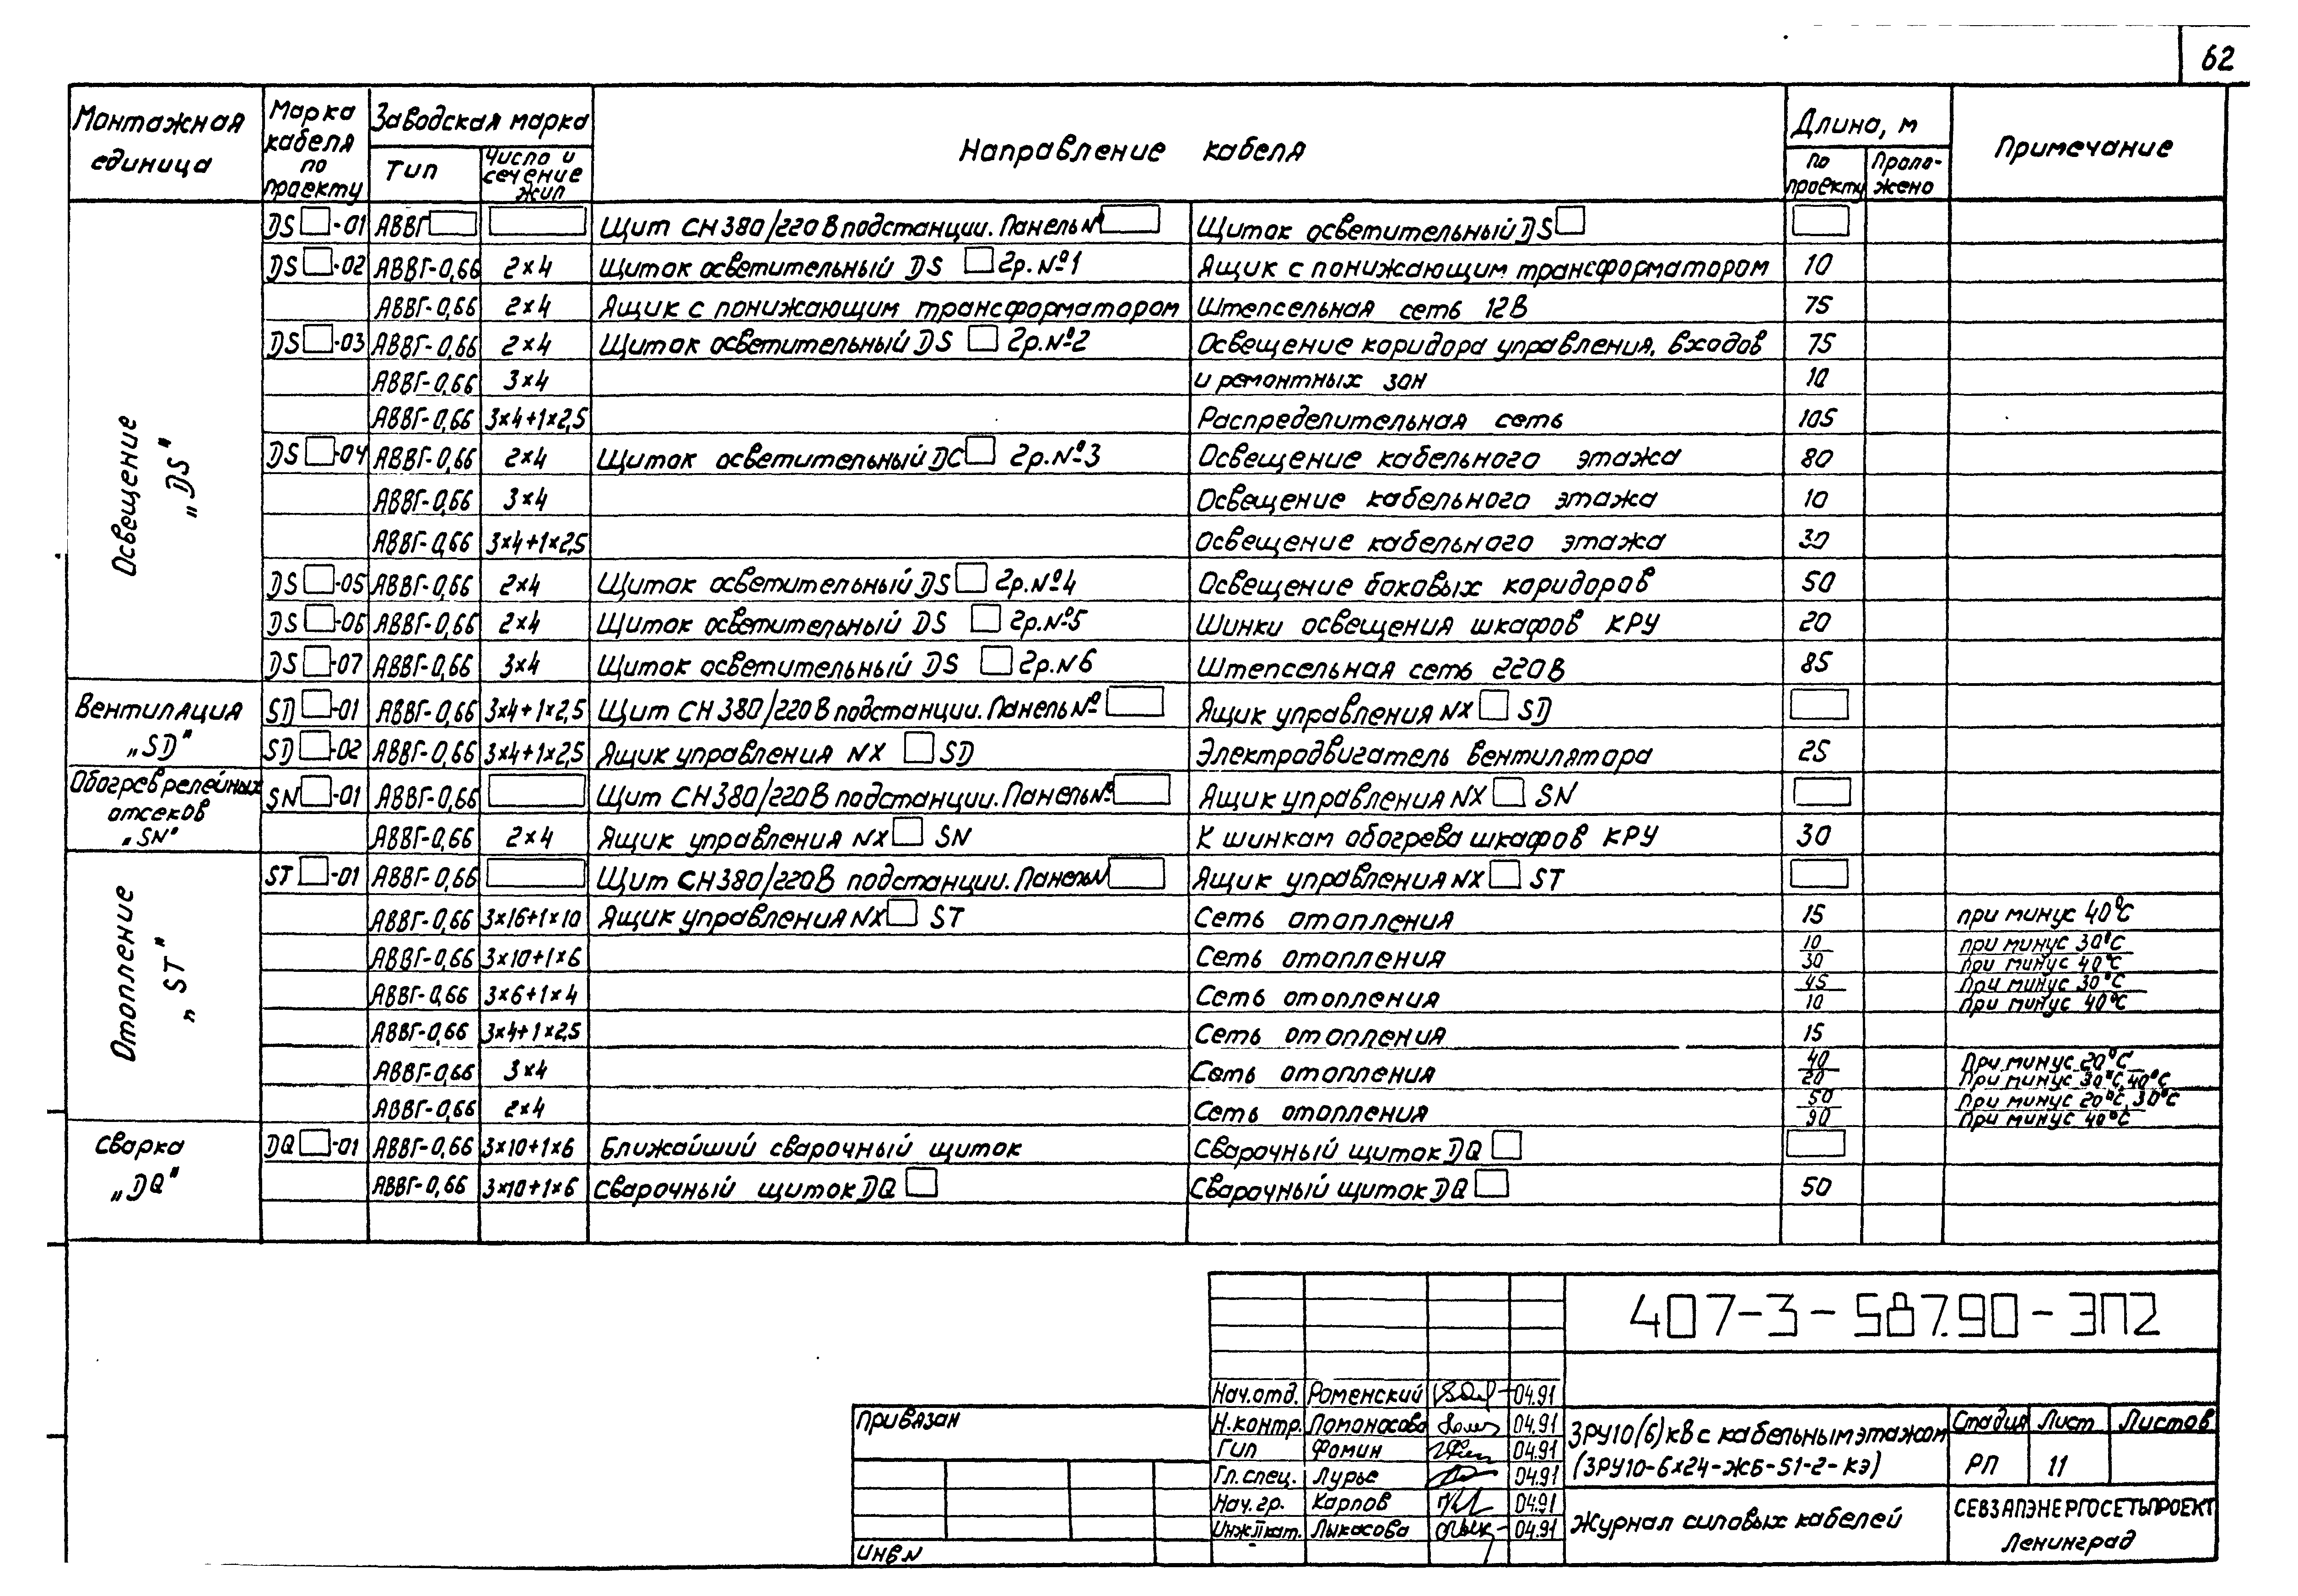 62
Монтажная единица
Марка кабеля по проекту
Заводская марка
Тип
Число и сечение жил
Направление кабеля
Длина, м
По проекту
Проло-жено
Примечание
Освещение „DS"
DS □-01 АВВГ □ □ Щит СН 380/220 В подстанции. Панель № □ Щиток осветительный DS □ □
DS □-02 АВВГ-0,66 2×4 Щиток осветительный DS □ гр. №1 Ящик с понижающим трансформатором 10
АВВГ-0,66 2×4 Ящик с понижающим трансформатором Штепсельная сеть 12В 75
DS □-03 АВВГ-0,66 2×4 Щиток осветительный DS □ гр. №2 Освещение коридора управления, входов 75
АВВГ-0,66 3×4 и ремонтных зон 10
АВВГ-0,66 3×4+1×2,5 Распределительная сеть 105
DS □-04 АВВГ-0,66 2×4 Щиток осветительный DC □ гр. №3 Освещение кабельного этажа 80
АВВГ-0,66 3×4 Освещение кабельного этажа 10
АВВГ-0,66 3×4+1×2,5 Освещение кабельного этажа 30
DS □-05 АВВГ-0,66 2×4 Щиток осветительный DS □ гр. №4 Освещение боковых коридоров 50
DS □-06 АВВГ-0,66 2×4 Щиток осветительный DS □ гр. №5 Шинки освещения шкафов КРУ 20
DS □-07 АВВГ-0,66 3×4 Щиток осветительный DS □ гр. N6 Штепсельная сеть 220В 85
Вентиляция „SD"
SD □-01 АВВГ-0,66 3×4+1×2,5 Щит СН 380/220 В подстанции. Панель № □ Ящик управления NX □ SD □
SD □-02 АВВГ-0,66 3×4+1×2,5 Ящик управления NX □ SD Электродвигатель вентилятора 25
Обогрев релейных отсеков „SN"
SN □-01 АВВГ-0,66 □ Щит СН 380/220 В подстанции. Панель № □ Ящик управления NX □ SN □
АВВГ-0,66 2×4 Ящик управления NX □ SN К шинкам обогрева шкафов КРУ 30
Отопление „ST"
ST □-01 АВВГ-0,66 □ Щит СН 380/220 В подстанции. Панель N □ Ящик управления NX □ ST □
АВВГ-0,66 3×16+1×10 Ящик управления NX □ ST Сеть отопления 15 при минус 40°С
АВВГ-0,66 3×10+1×6 Сеть отопления 10 при минус 30°С
30 При минус 40°С
АВВГ-0,66 3×6+1×4 Сеть отопления 45 При минус 30°С
10 При минус 40°С
АВВГ-0,66 3×4+1×2,5 Сеть отопления 15
АВВГ-0,66 3×4 Сеть отопления 40 При минус 20°С
20 При минус 30°С, 40°С
АВВГ-0,66 2×4 Сеть отопления 50 При минус 20°С, 30°С
90 При минус 40°С
Сварка „DQ"
DQ □-01 АВВГ-0,66 3×10+1×6 Ближайший сварочный щиток Сварочный щиток DQ □ □
АВВГ-0,66 3×10+1×6 Сварочный щиток DQ □ Сварочный щиток DQ □ 50
407-3-587.90-ЭП2
Нач.отд. Роменский 04.91
Н.контр. Ломоносова 04.91
Гип Фомин 04.91
Гл.спец. Лурье 04.91
Нач.гр. Карпов 04.91
Инж.IIкат. Лыкосова 04.91
Привязан
Инв.N
ЗРУ10(6)кВ с кабельным этажом
(ЗРУ10-6×24-ЖБ-S1-2-КЭ)
Стадия Лист Листов
РП 11
Журнал силовых кабелей
СЕВЗАПЭНЕРГОСЕТЬПРОЕКТ
Ленинград